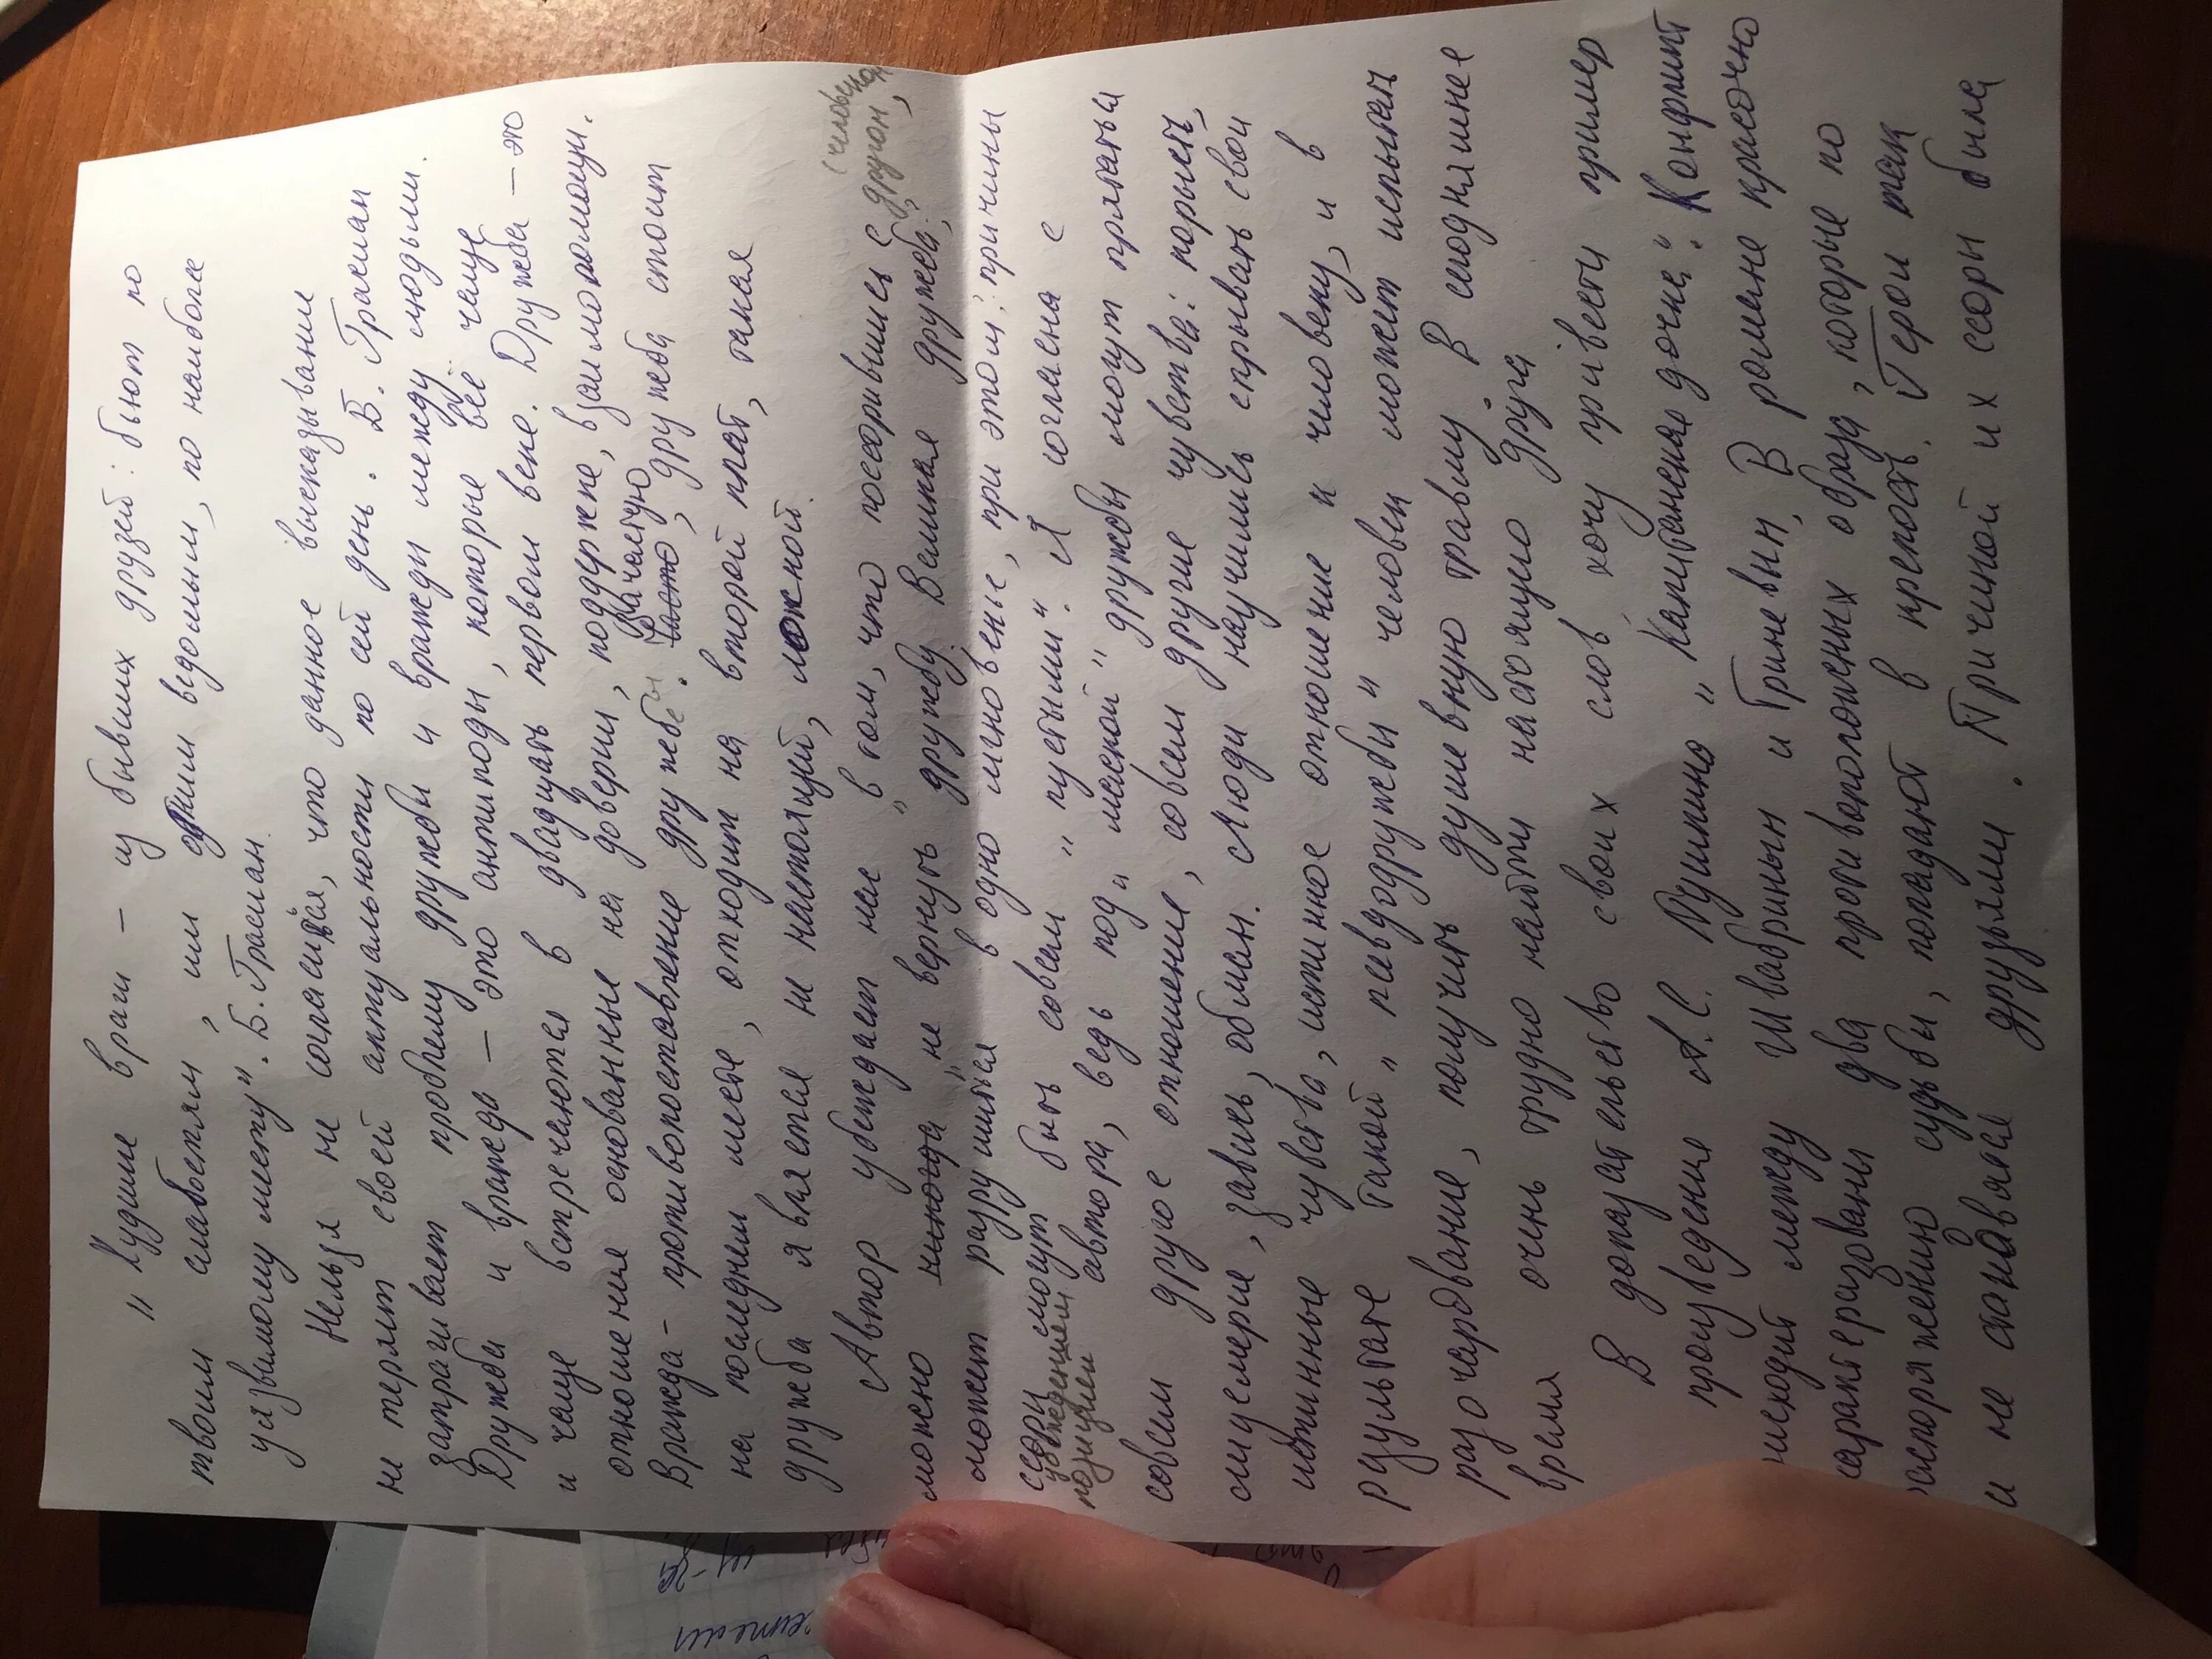 "Худшие враги – из бывших друзей: бьют по
твоим слабостям, им одним ведомым, по наиболе
уязвимому месту". Б. Грасиан.
Нельзя не согласиться, что данное высказывание
не теряет своей актуальности по сей день. Б. Грасиан
затрагивает проблему дружбы и вражды между людьми.
Дружба и вражда – это антиподы, которые всё чаще
и чаще встречаются в двадцать первом веке. Дружба – это
отношения основанные на доверии, поддержке, взаимопомощи.
Вражда – противопоставление дружбы. Зачастую, дружба стоит
на последнем месте, отходит на второй план, такая
дружба является не настоящей, ложной.
Автор убеждает нас в том, что поссорившись с другом, (человеком
можно иногда "не вернуть" дружбу. Великая дружба,
может разрушится в одно мгновенье, при этом, причины
ссоры могут быть совсем "пустыми". Я согласна с
убеждением
позицией автора, ведь под "маской" дружбы могут прятаться
совсем другое отношение, совсем другие чувства: корысть,
лицемерие, зависть, обман. Люди научились скрывать свои
истинные чувства, истинное отношение к человеку, и в
результате такой "псевдодружбы" человек может испытать
разочарование, получить душевную травму. В сегодняшнее
время очень трудно найти настоящего друга
В доказательство своих слов хочу привести пример
произведения А.С. Пушкина "Капитанская дочка". Конфликт
происходит между Швабриным и Гриневым. В романе красочно
характеризованы два противоположных образа, которые по
распоряжению судьбы, попадают в крепость. Герои так
и не становятся друзьями. Причиной их ссоры была